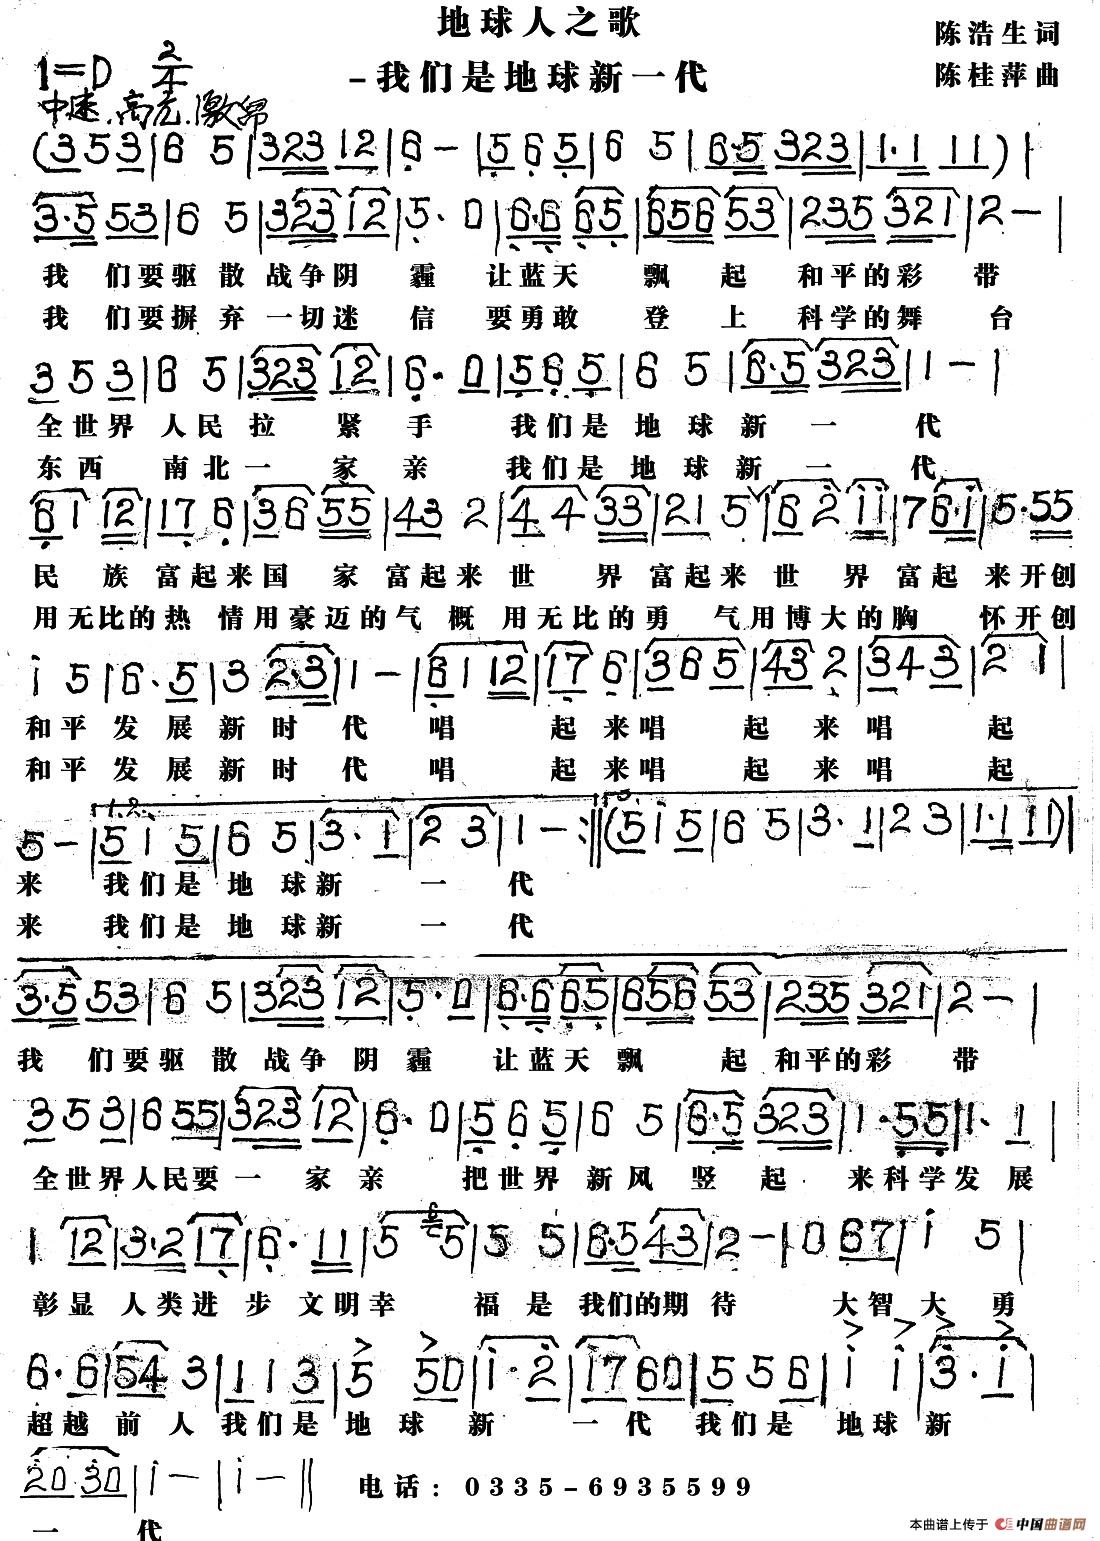 地球人之歌
陈浩生词
1=D 2/4
-我们是地球新一代
陈桂萍曲
中速.高亢.激昂
(3 5 3|6 5|323 12|6 -|5 6 5|6 5|6·5 323|1·1 11)|
3·5 53|6 5|323 12|5· 0|6·6 65|656 53|235 321|2 -|
我 们要驱 散 战争阴 霾 让蓝天 飘 起 和平的彩 带
我 们要摒 弃 一切迷 信 要勇敢 登 上 科学的舞 台
3 5 3|6 5|323 12|6· 0|5 6 5|6 5|6·5 323|1 -|
全世界 人民拉 紧 手 我们是 地 球 新 一 代
东西 南北一 家 亲 我们是 地 球 新 一 代
61 12|17 6|36 55|43 2|44 33|21 5|62 11|7 61|5·55
民 族 富起来国 家 富起来 世 界 富起来 世 界 富起 来开创
用无比的热 情用豪迈的气 概 用无比的勇 气用博大的胸 怀开创
i 5|6· 5|3 2·3|1 -|61 12|17 6|36 5|43 2|34 3|2 1|
和平 发 展 新 时 代 唱 起 来唱 起 来 唱 起
和平 发 展 新 时 代 唱 起 来唱 起 来 唱 起
1.2. 3.
5 -|5 i 5|6 5|3· 1|2 3|1 -:‖(5 i 5|6 5|3· 1|2 3|1·1 11)|
来 我们是 地 球新 一 代
来 我们是 地 球新 一 代
3·5 53|6 5|323 12|5· 0|6·6 65|656 53|235 321|2 -|
我 们要驱 散 战争 阴 霾 让蓝天 飘 起 和平的彩 带
3 5 3|6 55|323 12|6· 0|5 6 5|6 5|6·5 323|1· 55|1· 1|
全世界人民要 一 家 亲 把世界 新风 竖 起 来科学发 展
1 12|3·2 17|6· 11|5 5|5 5|6·5 43|2 -|0 67|i 5|
彰显 人类进 步 文明幸 福 是 我们的期 待 大智大 勇
6· 6|54 3|1 1 3|5 50|i· 2|17 60|5 5 6|i i|3· i|
超越 前 人 我们是 地 球 新 一 代 我们是 地球 新
20 30|i -|i -‖
电话：0335-6935599
一 代
本曲谱上传于 中国曲谱网